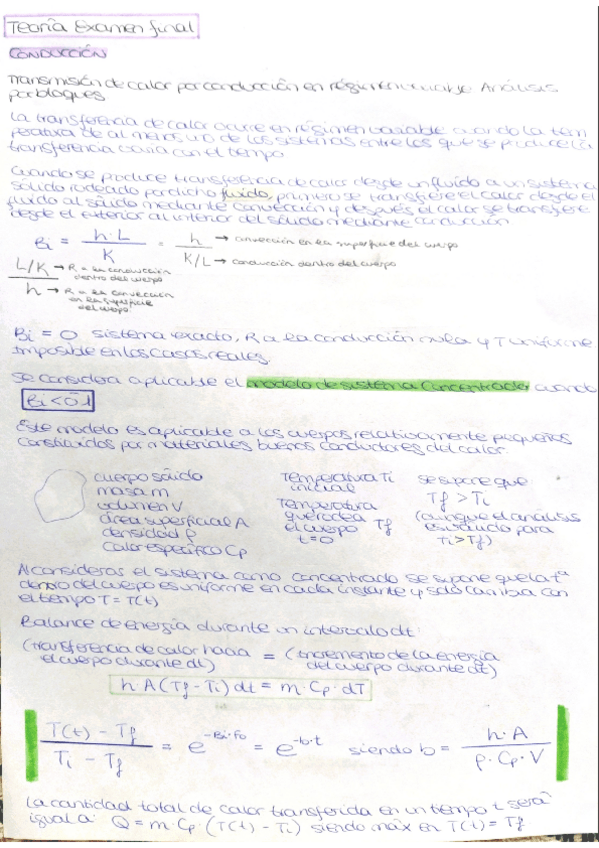 Teoría Examen final
CONDUCCIÓN
Transmisión de calor por conducción en régimen variable. Análisis
por bloques
La transferencia de calor ocurre en régimen variable cuando la tem
peratura de al menos uno de los sistemas entre los que se produce la
transferencia varía con el tiempo.
Cuando se produce transferencia de calor desde un fluido a un sistema
sólido rodeado por dicho fluido, primero se transfiere el calor desde el
fluido al sólido mediante convección y después el calor se transfiere
desde el exterior al interior del sólido mediante conducción
Bi = h·L / K = h / K/L → convección en la superficie del cuerpo
→ conducción dentro del cuerpo
L/K → R a la conducción dentro del cuerpo
h → R a la convección en la superficie del cuerpo
Bi = 0 sistema exacto, R a la conducción nula y T uniforme
Imposible en los casos reales.
Se considera aplicable el modelo de sistema concentrado cuando
Bi < 0'1
Este modelo es aplicable a los cuerpos relativamente pequeños
constituidos por materiales buenos conductores del calor.
cuerpo sólido
masa m
volumen V
área superficial A
densidad ρ
calor específico Cp
Temperatura Ti
inicial
Temperatura
que rodea Tf
el cuerpo
t=0
se supone que
Tf > Ti
(aunque el análisis
es válido para
Ti > Tf)
Al consideras el sistema como concentrado se supone que la tª
dentro del cuerpo es uniforme en cada instante y solo cambia con
el tiempo T = T(t)
Balance de energía durante un intervalo dt:
(transferencia de calor hacia = (Incremento de la energía
el cuerpo durante dt) del cuerpo durante dt)
h·A (Tf - Ti) dt = m·Cp·dT
T(t) - Tf / Ti - Tf = e^-Bi·Fo = e^-b·t siendo b = h·A / ρ·Cp·V
La cantidad total de calor transferida en un tiempo t será
igual a: Q = m·Cp·(T(t) - Ti) siendo máx en T(t) = Tf